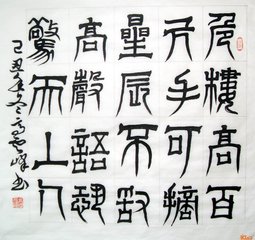 危樓高百
尺手可摘
星辰不敢
高聲語恐
驚天上人
己丑年冬雲峰书